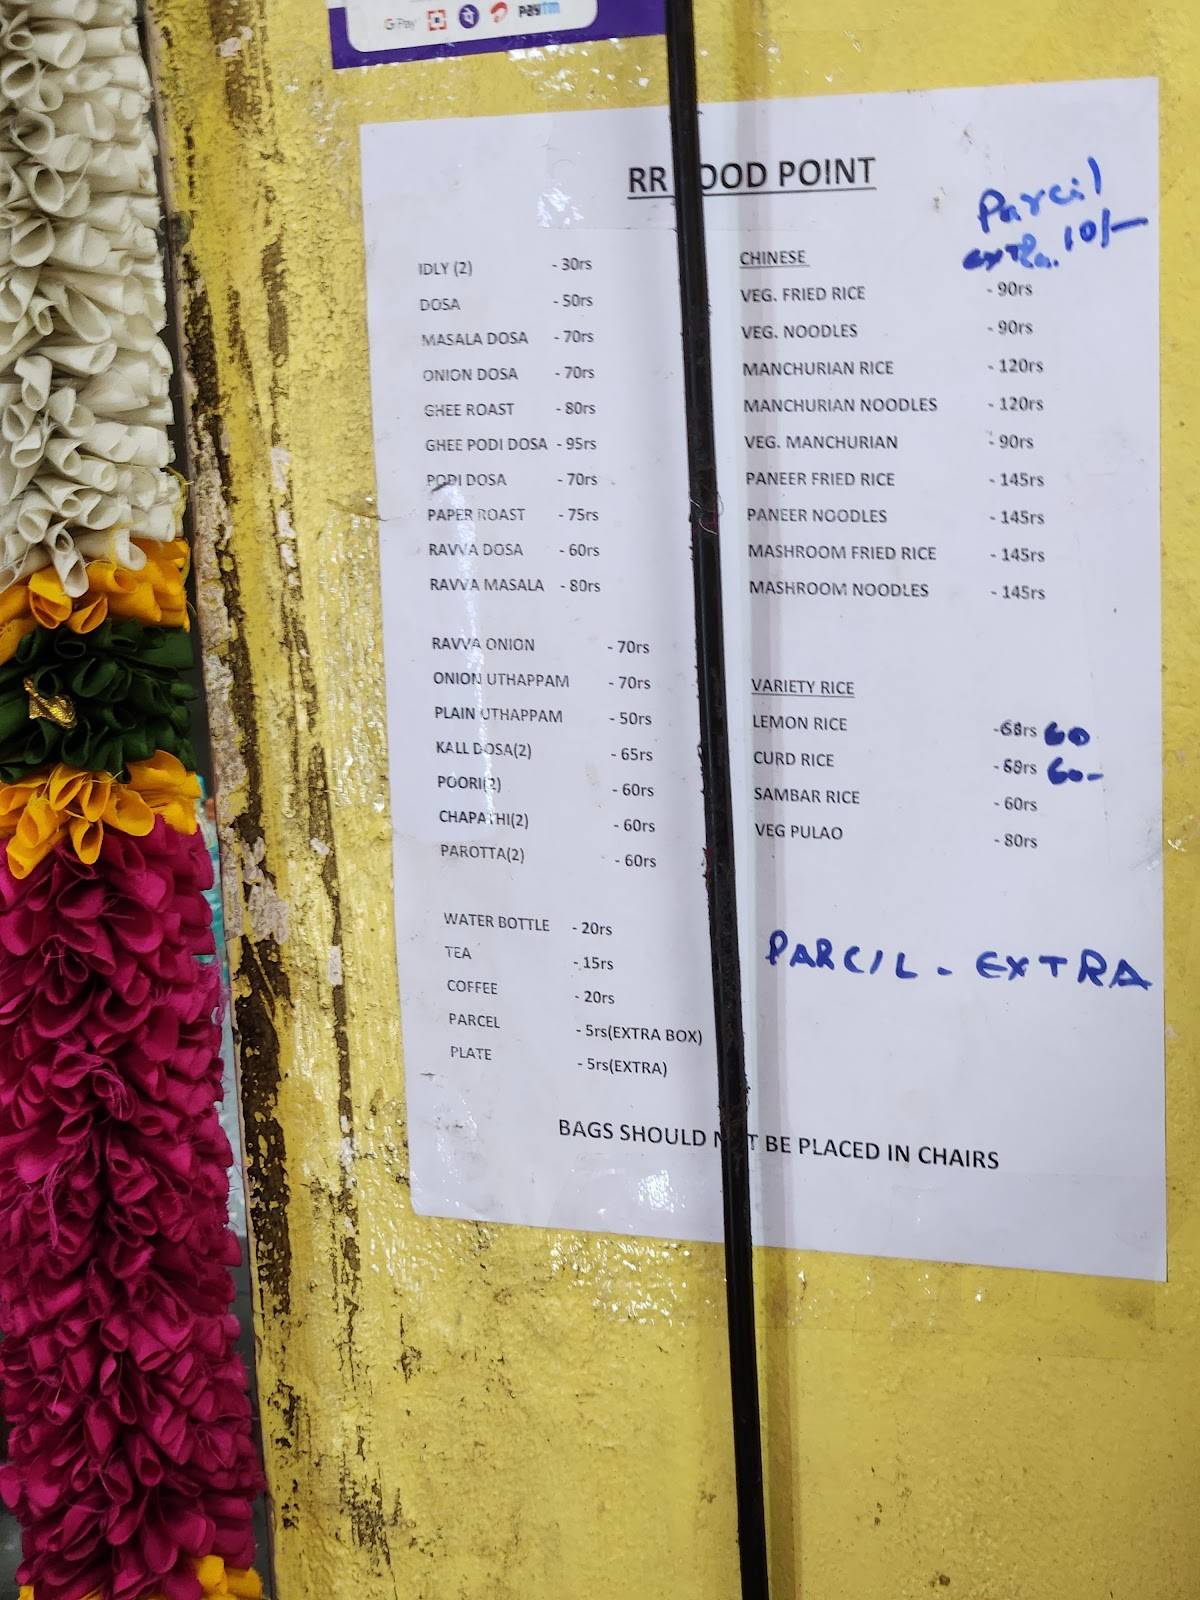 G Pay paytm
RR OOD POINT
Parcil
extra. 10/-
IDLY (2) - 30rs
DOSA - 50rs
MASALA DOSA - 70rs
ONION DOSA - 70rs
GHEE ROAST - 80rs
GHEE PODI DOSA - 95rs
PODI DOSA - 70rs
PAPER ROAST - 75rs
RAVVA DOSA - 60rs
RAVVA MASALA - 80rs
RAVVA ONION - 70rs
ONION UTHAPPAM - 70rs
PLAIN UTHAPPAM - 50rs
KALL DOSA(2) - 65rs
POORI(2) - 60rs
CHAPATHI(2) - 60rs
PAROTTA(2) - 60rs
WATER BOTTLE - 20rs
TEA - 15rs
COFFEE - 20rs
PARCEL - 5rs(EXTRA BOX)
PLATE - 5rs(EXTRA)
CHINESE
VEG. FRIED RICE - 90rs
VEG. NOODLES - 90rs
MANCHURIAN RICE - 120rs
MANCHURIAN NOODLES - 120rs
VEG. MANCHURIAN - 90rs
PANEER FRIED RICE - 145rs
PANEER NOODLES - 145rs
MASHROOM FRIED RICE - 145rs
MASHROOM NOODLES - 145rs
VARIETY RICE
LEMON RICE 60
CURD RICE 60-
SAMBAR RICE - 60rs
VEG PULAO - 80rs
PARCIL - EXTRA
BAGS SHOULD N T BE PLACED IN CHAIRS